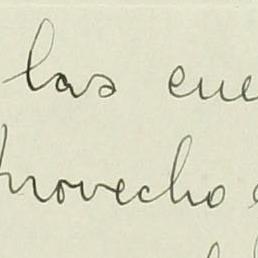 las cue
provecho